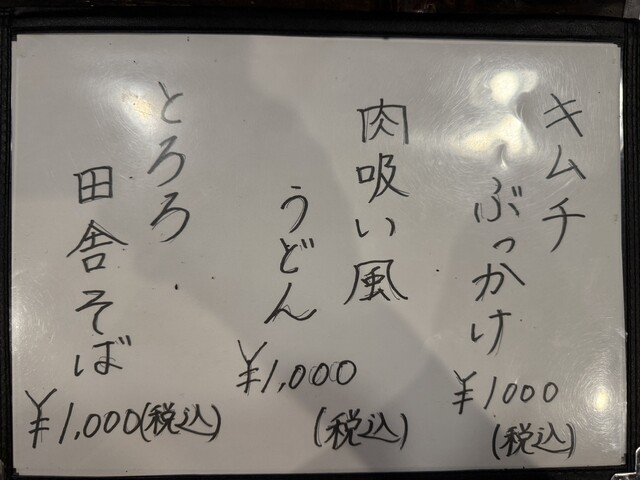 キムチ
ぶっかけ
¥1000
(税込)
肉吸い風
うどん
¥1,000
(税込)
とろろ
田舎そば
¥1,000(税込)